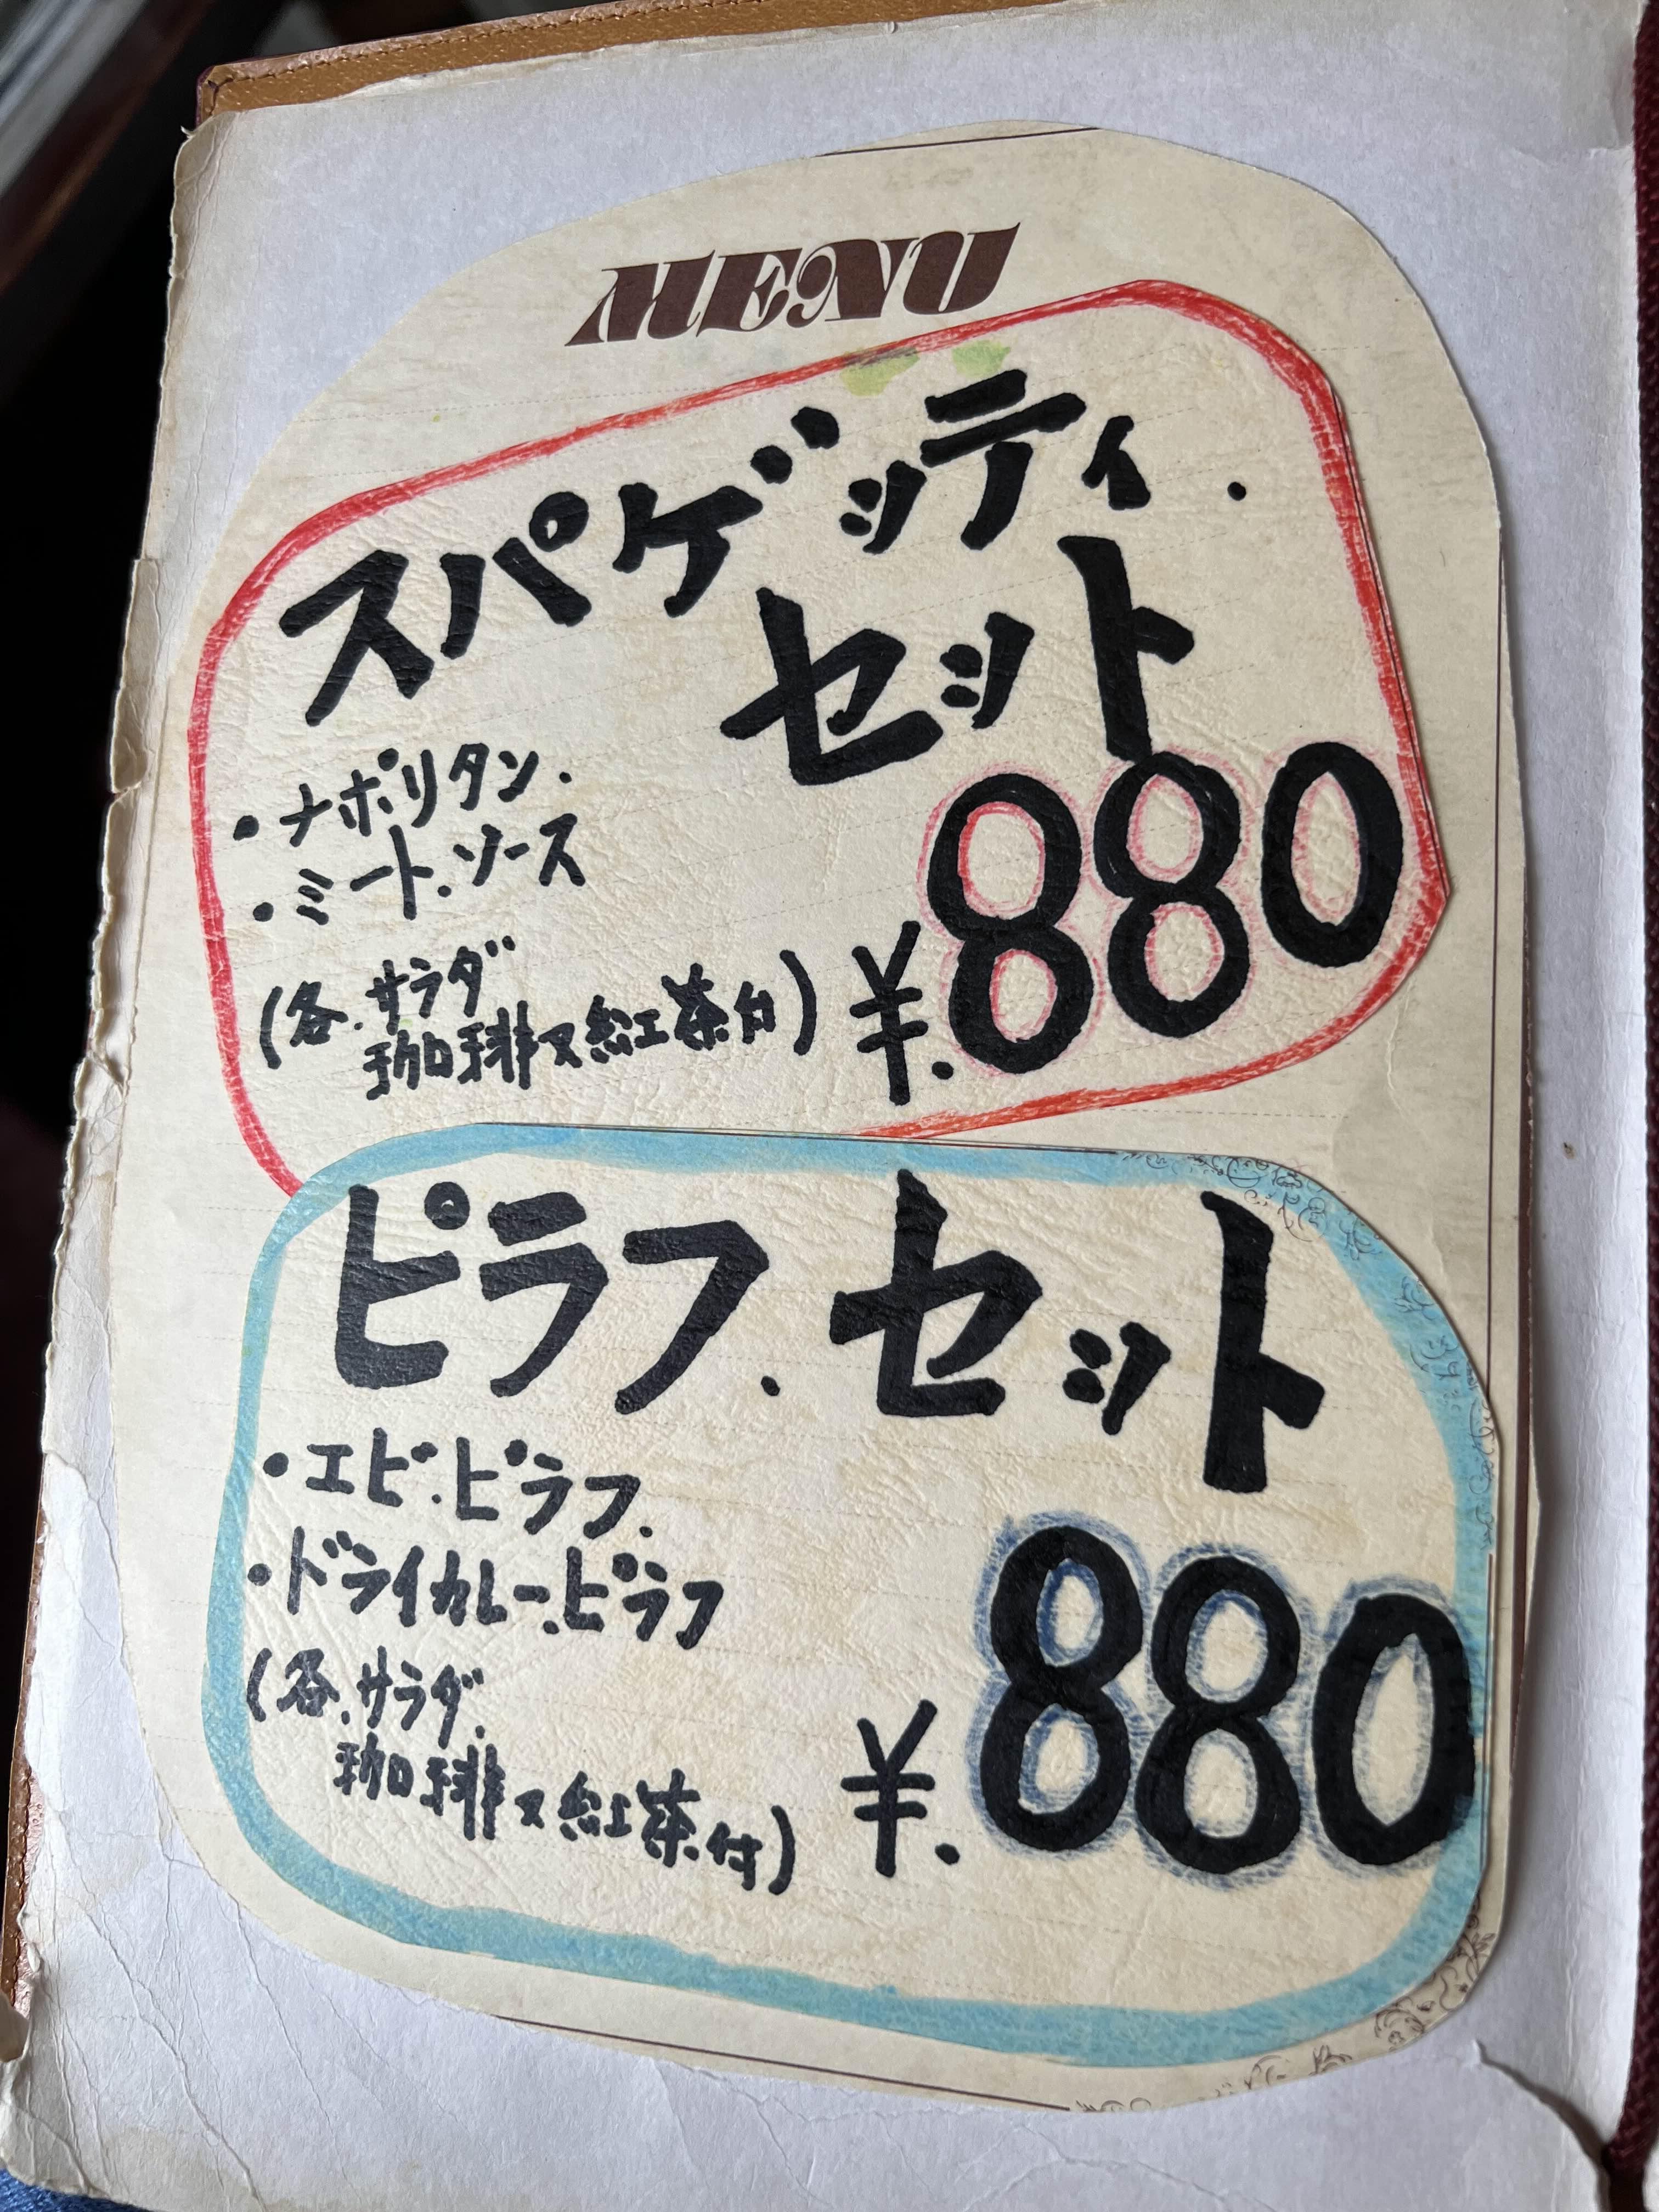 MENU
スパゲッティ.
セット
・ナポリタン.
・ミート.ソース
(各.サラダ
珈琲又紅茶付)
¥.880
ピラフ.セット
・エビ.ピラフ.
・ドライカレー.ピラフ
(各.サラダ.
珈琲又紅茶付)
¥.880